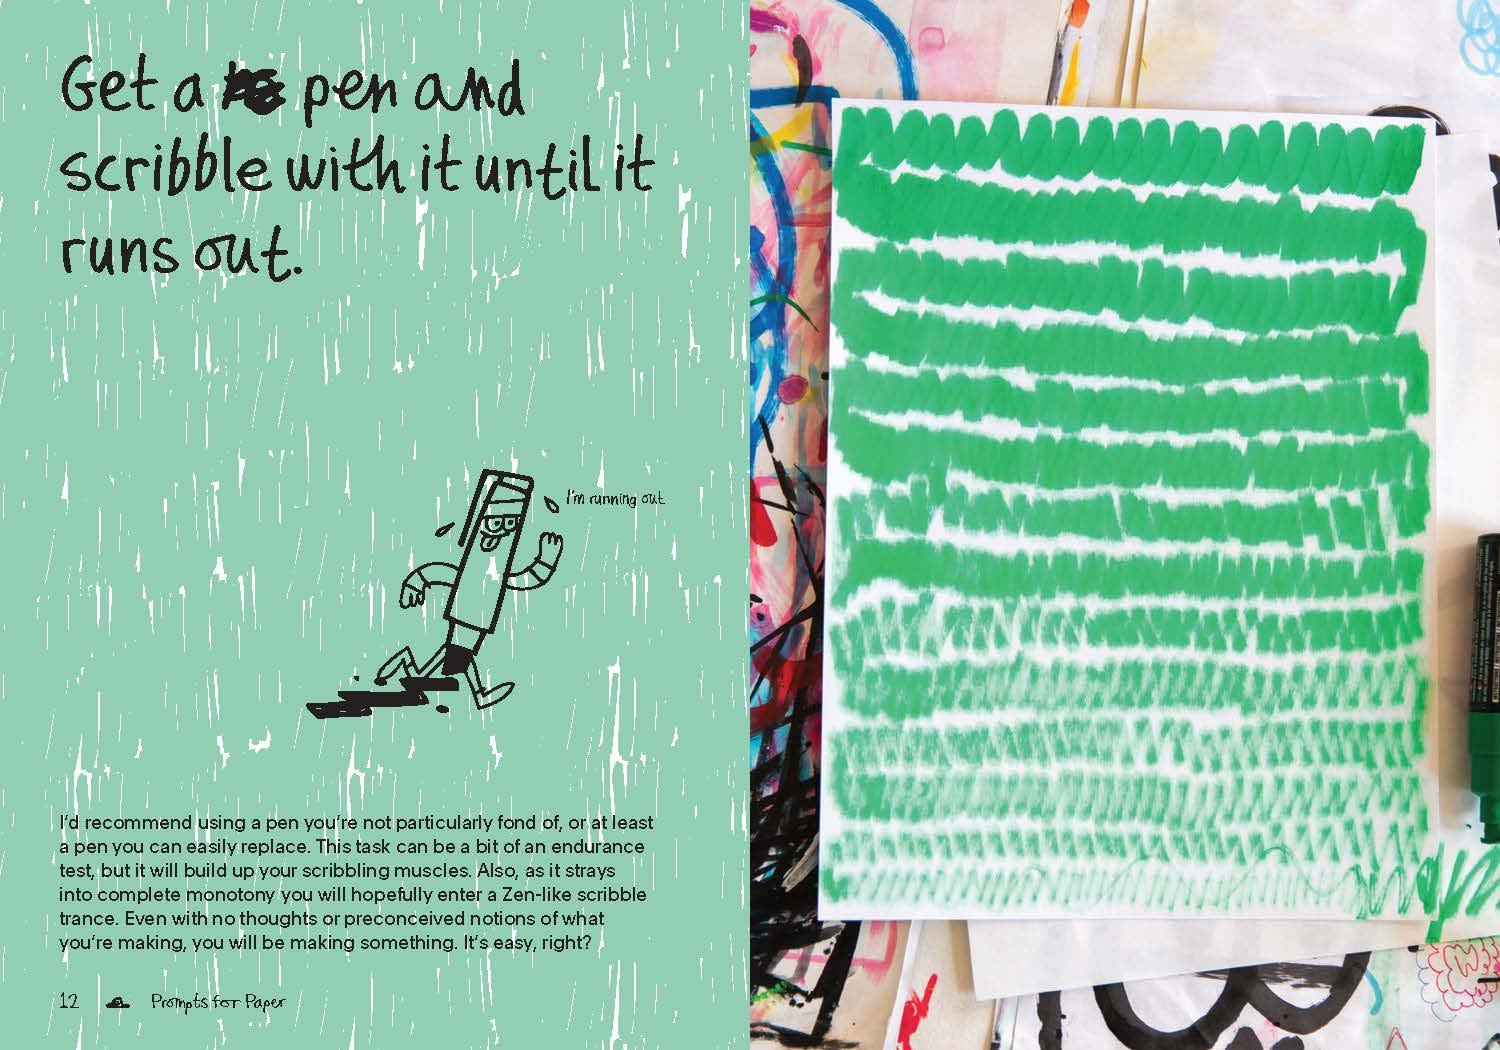 Get a pen and
scribble with it until it
runs out.
I'm running out
I'd recommend using a pen you're not particularly fond of, or at least
a pen you can easily replace. This task can be a bit of an endurance
test, but it will build up your scribbling muscles. Also, as it strays
into complete monotony you will hopefully enter a Zen-like scribble
trance. Even with no thoughts or preconceived notions of what
you're making, you will be making something. It's easy, right?
12 Prompts for Paper